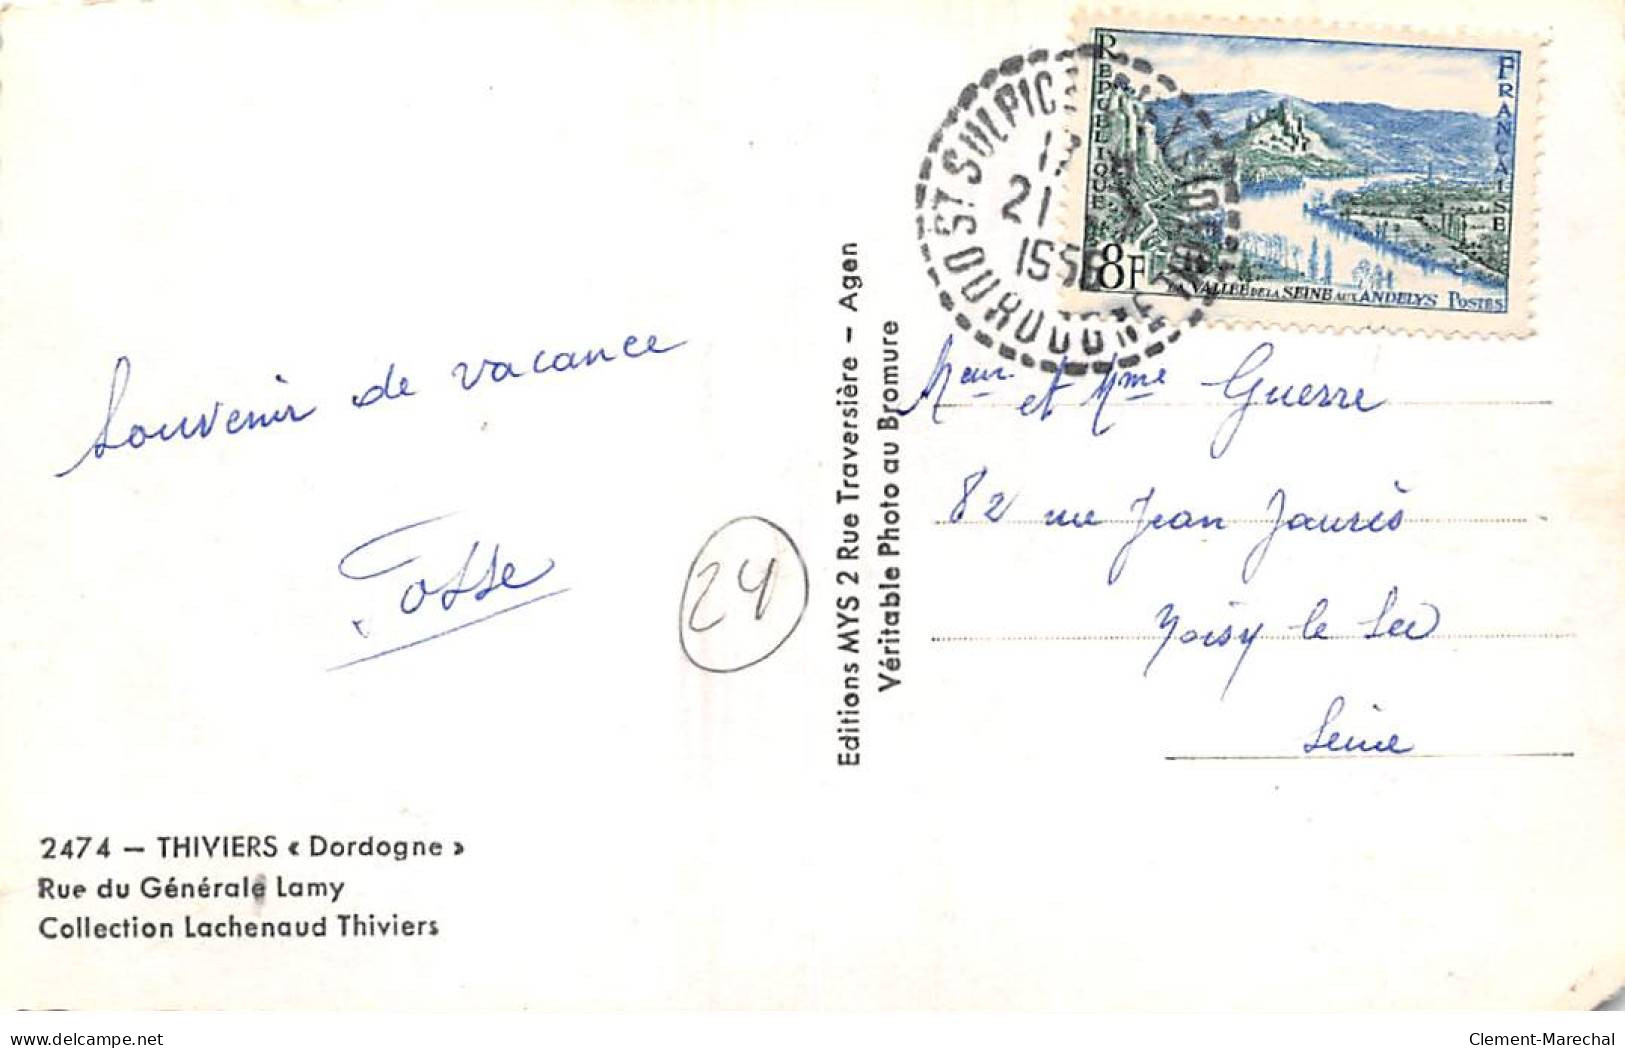 RÉPUBLIQUE FRANÇAISE
8F
LA VALLÉE DE LA SEINE AUX ANDELYS POSTES
ST SULPICE
21
DORDOGNE
Souvenir de vacance
Fosse
24
Editions MYS 2 Rue Traversière – Agen
Véritable Photo au Bromure
Meur et Mme Guerre
82 rue Jean Jaurès
Noisy le Sec
Seine
2474 – THIVIERS « Dordogne »
Rue du Générale Lamy
Collection Lachenaud Thiviers
delcampe.net
Clement-Marechal